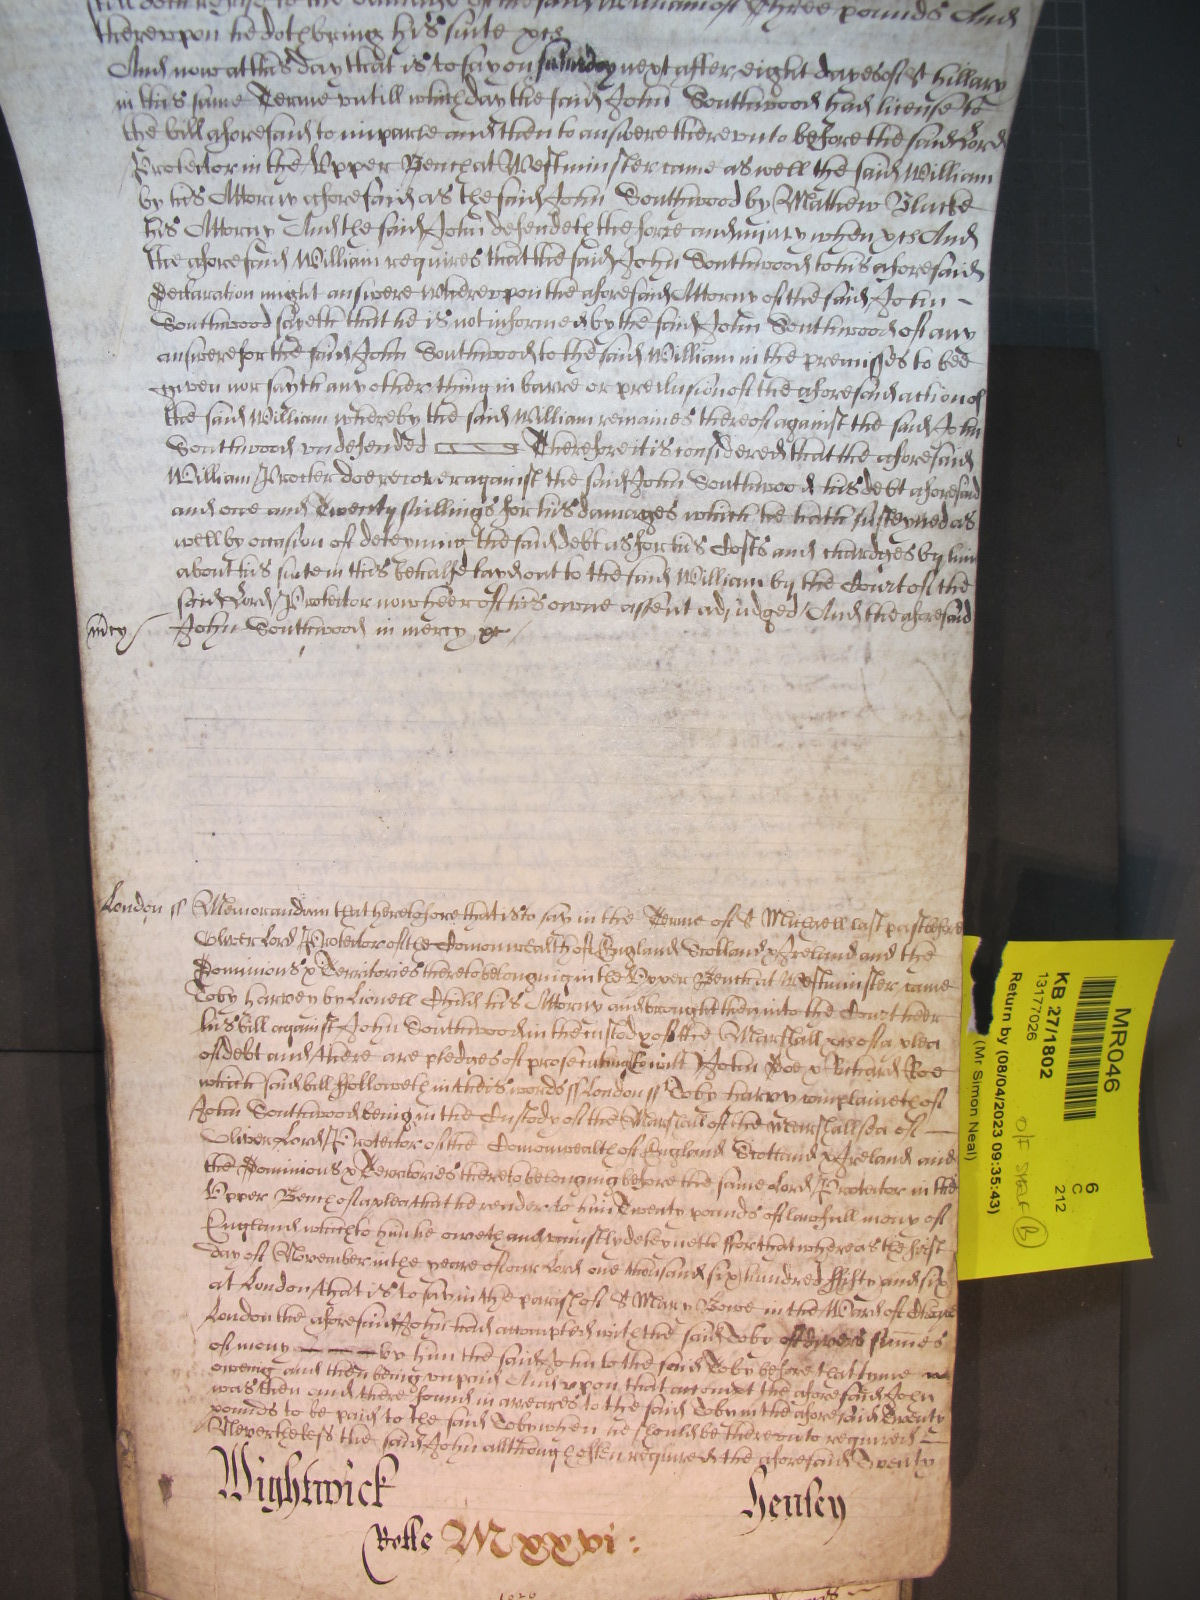 still doth refuse to the damage of the said William of Three pounds And
thereupon he doth bring his suite &c
And now at this day that is to say on saturday next after eight dayes of St hillary
in this same Terme untill which day the said John Southwood had license to
the bill aforesaid to imparle and then to answere thereunto before the said Lord
Protector in the Upper Bench at Westminster came as well the said William
by his Attorny aforesaid as the said John Southwood by Mathew Blucke
his Attorny And the said John defendeth the force and injury when &c And
the aforesaid William requires that the said John Southwood to his aforesaid
Declaration might answere Whereupon the aforesaid Attorny of the said John –
Southwood sayeth that he is not informed by the said John Southwood of any
answere for the said John Southwood to the said William in the premisses to bee
given nor sayth any other thing in barre or preclusion of the aforesaid action of
the said William whereby the said William remaines thereof against the said John
Southwood undefended Therefore it is considered that the aforesaid
William Procter doe recover against the said John Southwood his debt aforesaid
and one and Twenty shillings for his damages which he hath susteyned as
well by occasion of deteyning the said debt as for his Costs and chardges by him
about his suite in this behalfe layd out to the said William by the Court of the
said Lord Protector now heer of his owne assent adjudged And the aforesaid
mcy John Southwood in mercy &c
London ss Memorandum that heretofore that is to say in the Terme of St Michaell last past before
Oliver Lord Protector of the Comonwealth of England Scotland & Ireland and the
Dominions & Territories thereto belonging in the Upper Bench at Westminster came
Toby harvey by Lionell Child his Attorny and brought then into the Court heer
his bill against John Southwood in the custody of the Marshall &c of a plea
of debt and there are pledges of prosecuting to wit John Doe & Richard Roe
which said bill followeth in theis words ss London ss Toby harvy complaineth of
John Southwood being in the Custody of the Marshall of the Marshallsea of —
Oliver Lord Protector of the Comonwealth of England Scotland & Ireland and
the Dominions & Territories thereto belonging before the same Lord Protector in the
Upper Bench of a plea that he render to him Twenty pounds of lawfull mony of
England which to him he oweth and unjustly deteyneth ffor that whereas the first
day of November in the yeare of our Lord one thousand six hundred ffifty and six
at London that is to say in the parish of St Mary Bowe in the Ward of Cheape
London the aforesaid John had accompted with the said Toby of divers summes
of mony — — — by him the said John to the said Toby before that tyme
oweing and then being unpaid And upon that accompt the aforesaid John
was then and there found in arreares to the said Toby in the aforesaid Twenty
pounds to be paid to the said Toby when he should be thereunto required –
Neverthelesse the said John allthough often required the aforesaid Twenty
Wightwick Henley
Rolle MXXVI :
1026
MR046
KB 27/1802
13177026
Return by (08/04/2023 09:35:43)
(Mr Simon Neal)
6
C
212
O/F SHELF B